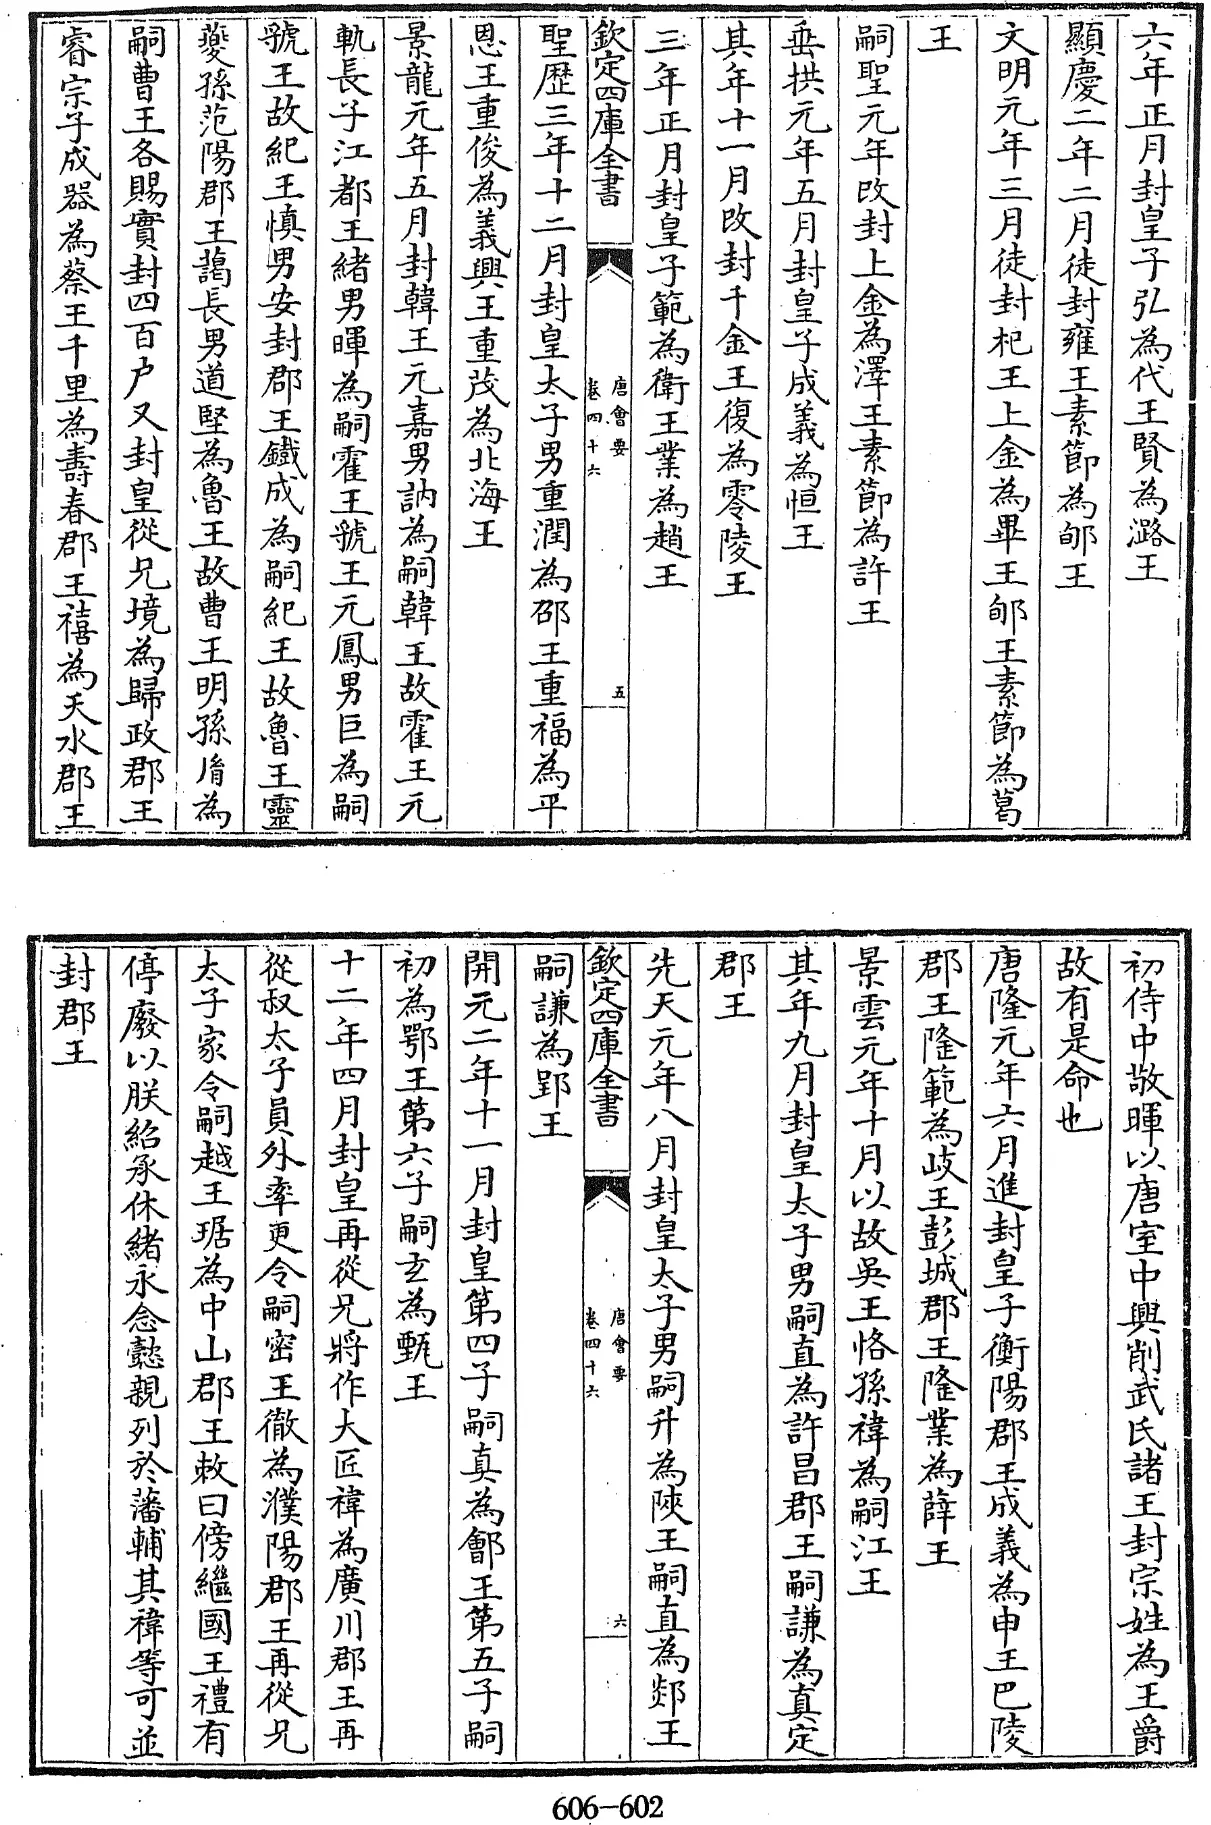 六年正月封皇子弘為代王賢為潞王
顯慶二年二月徒封雍王素節為郇王
文明元年三月徒封杞王上金為畢王郇王素節為葛
王
嗣聖元年改封上金為澤王素節為許王
垂拱元年五月封皇子成義為恒王
其年十一月改封千金王復為零陵王
三年正月封皇子範為衛王業為趙王
欽定四庫全書
唐會要
卷四十六
五
聖歷三年十二月封皇太子男重潤為邵王重福為平
恩王重俊為義興王重茂為北海王
景龍元年五月封韓王元嘉男訥為嗣韓王故霍王元
軌長子江都王緒男暉為嗣霍王虢王元鳳男巨為嗣
虢王故紀王慎男安封郡王鐵成為嗣紀王故魯王靈
夔孫范陽郡王藹長男道堅為魯王故曹王明孫胤為
嗣曹王各賜實封四百户又封皇從兄境為歸政郡王
睿宗子成器為蔡王千里為壽春郡王禧為天水郡王
初侍中敬暉以唐室中興削武氏諸王封宗姓為王爵
故有是命也
唐隆元年六月進封皇子衡陽郡王成義為申王巴陵
郡王隆範為岐王彭城郡王隆業為薛王
景雲元年十月以故吳王恪孫禕為嗣江王
其年九月封皇太子男嗣直為許昌郡王嗣謙為真定
郡王
先天元年八月封皇太子男嗣升為陜王嗣直為郯王
欽定四庫全書
唐會要
卷四十六
六
嗣謙為郢王
開元二年十一月封皇第四子嗣真為鄫王第五子嗣
初為鄂王第六子嗣玄為甄王
十二年四月封皇再從兄將作大匠禕為廣川郡王再
從叔太子員外率更令嗣密王徹為濮陽郡王再從兄
太子家令嗣越王琚為中山郡王敕曰傍繼國王禮有
停廢以朕紹承休緒永念懿親列於藩輔其禕等可並
封郡王
606-602